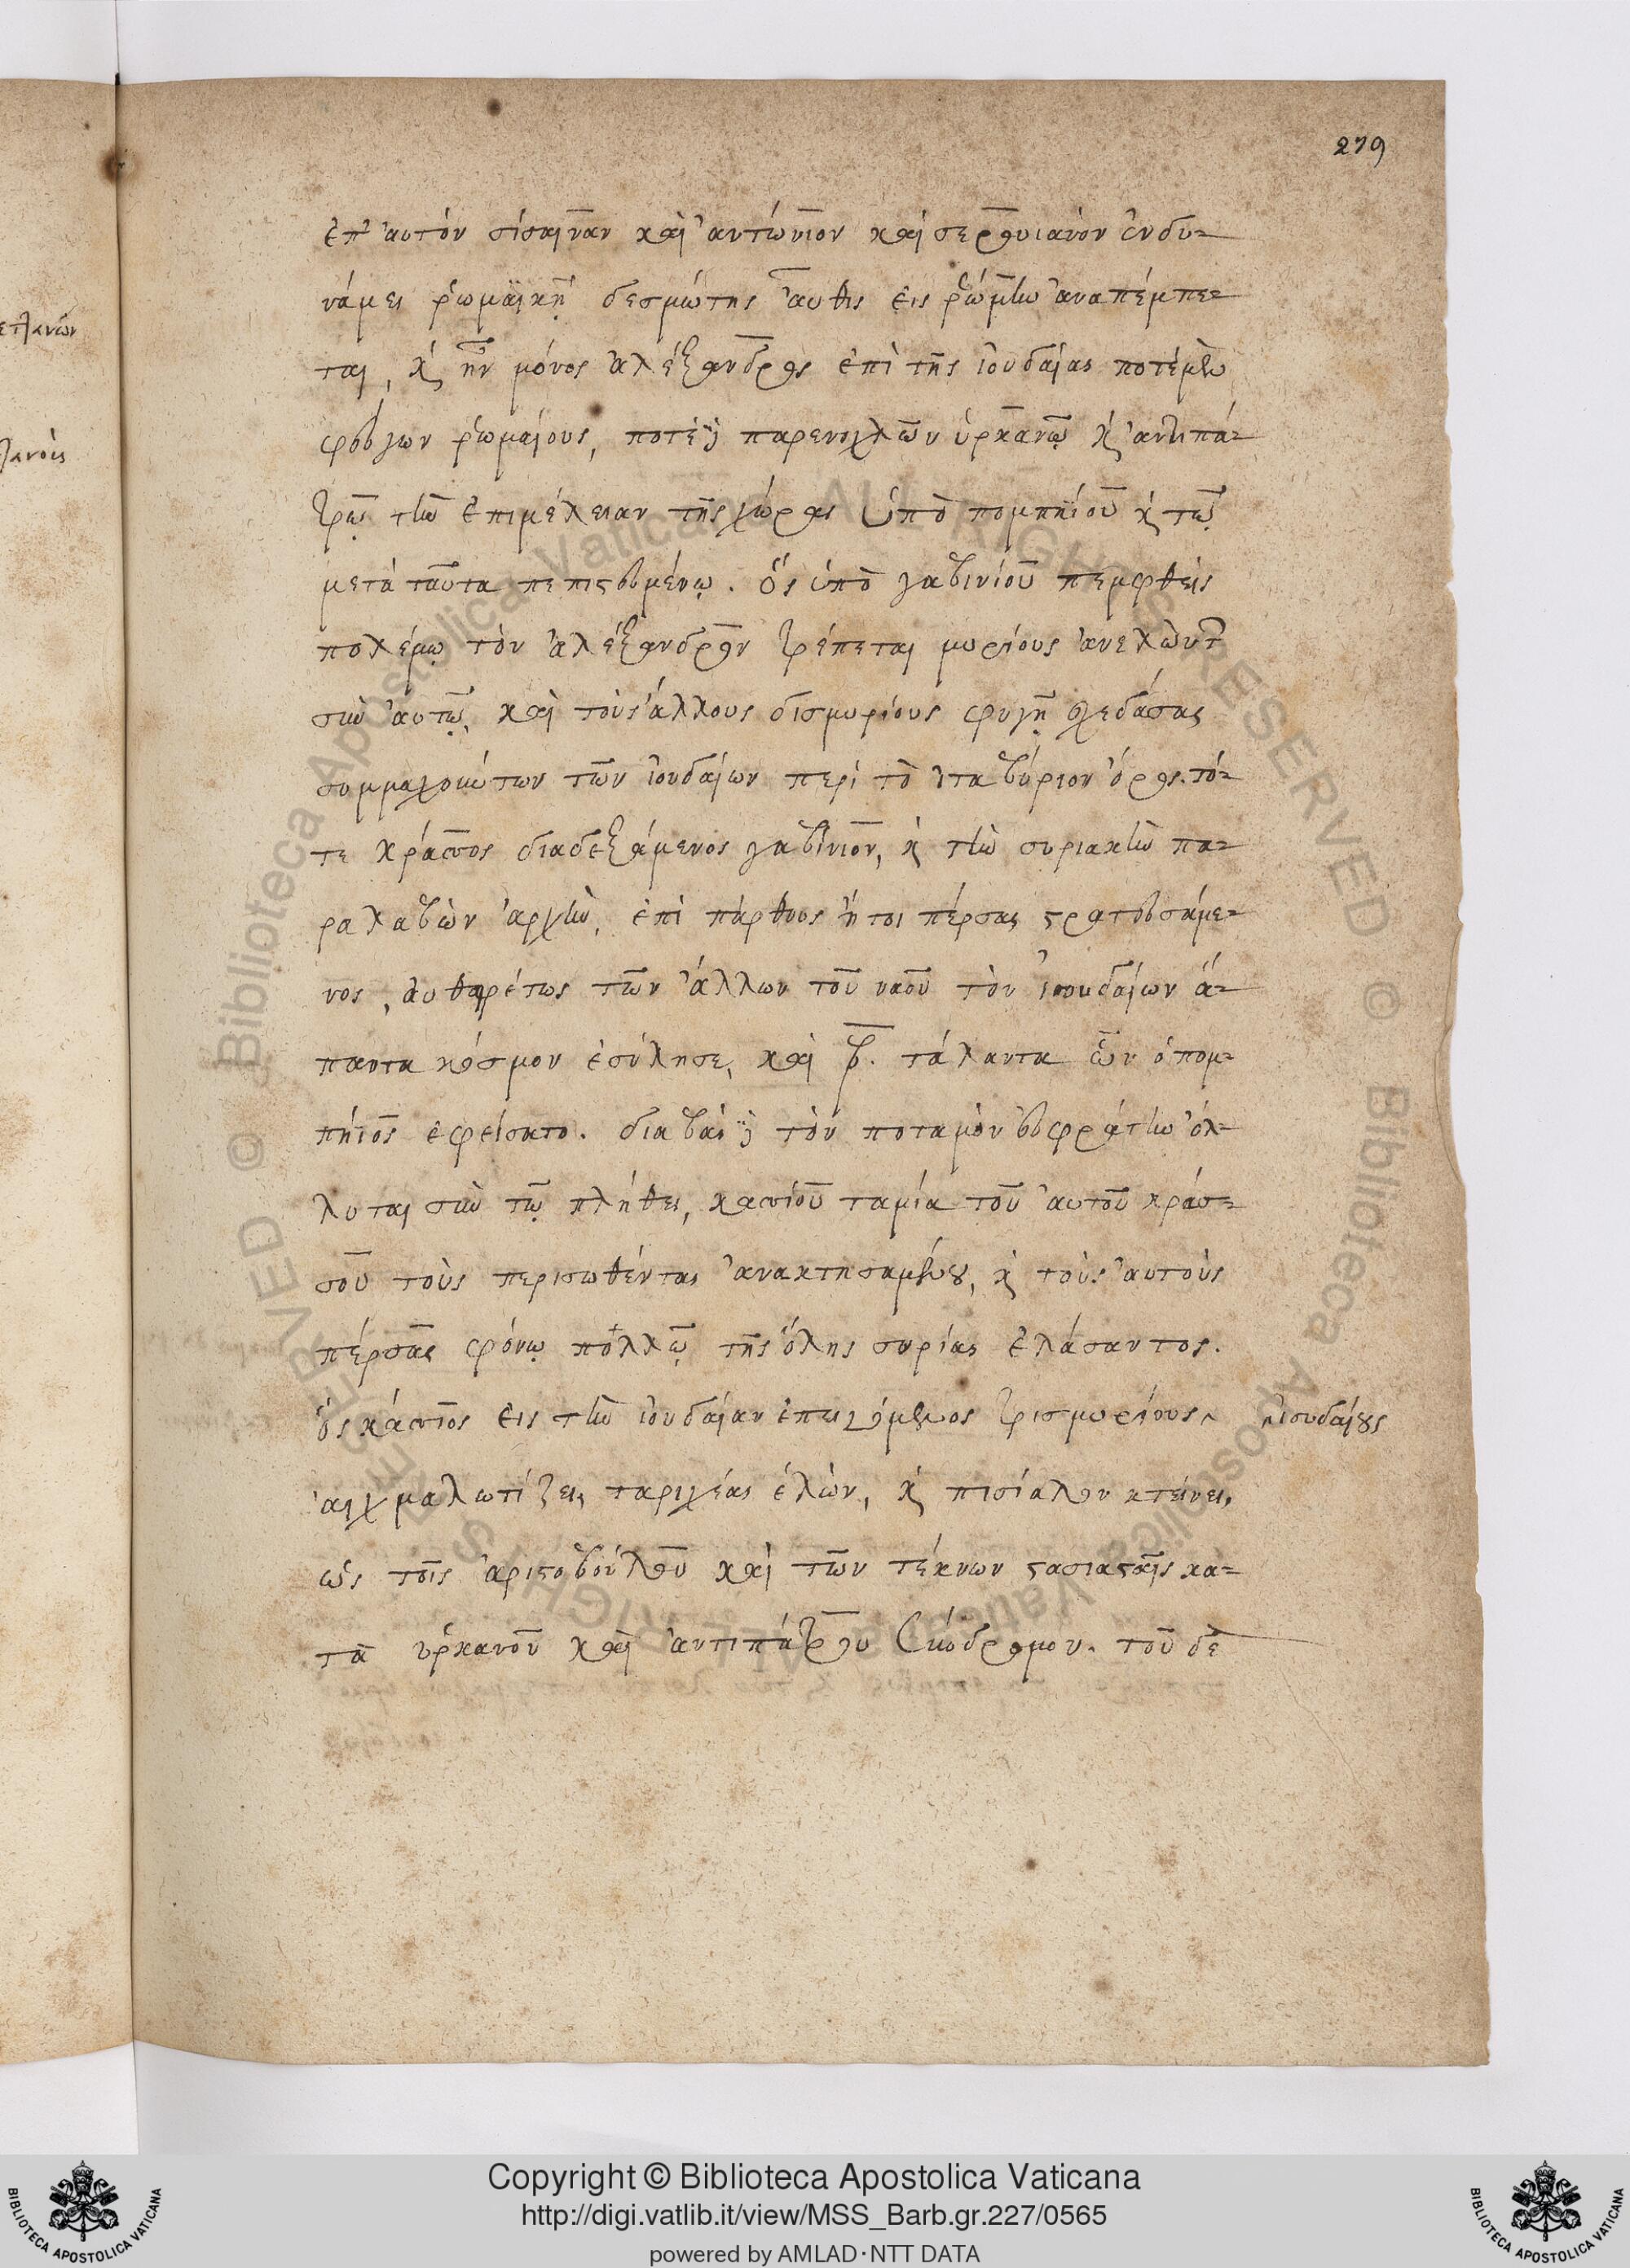 279
ἐπ' αὐτὸν σίσαιναν καὶ ἀντώνιον καὶ σερουιανὸν ἐν δυ-
νάμει ῥωμαϊκῇ δεσμώτης αὖθις εἰς ῥώμην ἀναπέμπε-
ται, καὶ ἦν μόνος ἀλέξανδρος ἐπὶ τῆς ἰουδαίας ποτὲ μὲν
φεύγων ῥωμαίους, ποτὲ δὲ παρενοχλῶν ὑρκανῷ καὶ ἀντιπά-
τρῳ τὴν ἐπιμέλειαν τῆς χώρας ὑπὸ πομπηίου καὶ τῷ
μετὰ ταῦτα πεπιστευμένῳ. ὃς ὑπὸ γαβινίου πεμφθεὶς
πολέμῳ τὸν ἀλέξανδρον τρέπεται μυρίους ἀνελὼν τ
σὺν αὐτῷ, καὶ τοὺς ἄλλους δισμυρίους φυγῇ σκεδάσας
συμμαχούντων τῶν ἰουδαίων περὶ τὸ ἰταβύριον ὄρος. τό-
τε κράσσος διαδεξάμενος γαβίνιον, καὶ τὴν συριακὴν πα-
ραλαβὼν ἀρχὴν, ἐπὶ πάρθους ἤτοι πέρσας στρατευσάμε-
νος, αὐθαιρέτως τῶν ἄλλων τοῦ ναοῦ τὸν ἰουδαίων ἅ-
παντα κόσμον ἐσύλησε, καὶ β. τάλαντα ὧν ὁ πομ-
πήϊος ἐφείσατο. διαβὰς δὲ τὸν ποταμὸν εὐφράτην ὄλ-
λυται σὺν τῷ πλήθει, κασσίου ταμία τοῦ αὐτοῦ κράσ-
σου τοὺς περισωθέντας ἀνακτησαμένου, καὶ τοὺς αὐτοὺς
πέρσας φόνῳ πολλῷ τῆς ὅλης συρίας ἐλάσαντος.
ὃς κάσσιος εἰς τὴν ἰουδαίαν ἐπειγόμενος τρισμυρίους
ἰουδαίους
αἰχμαλωτίζει, ταριχέας ἑλὼν, καὶ πισίαλον κτείνει,
ὡς τοῖς ἀριστοβούλου καὶ τῶν τέκνων στασιασταῖς κα-
τὰ ὑρκανοῦ καὶ ἀντιπάτρου σύνδρομον. τοῦ δὲ
Copyright © Biblioteca Apostolica Vaticana
http://digi.vatlib.it/view/MSS_Barb.gr.227/0565
powered by AMLAD·NTT DATA